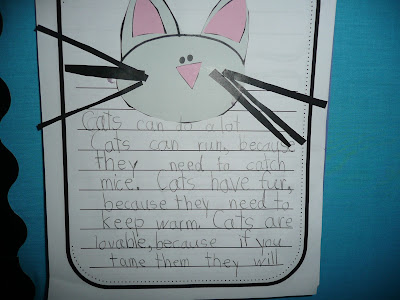 Cats can do a lot.
Cats can run, because
they need to catch
mice. Cats have fur,
because they need to
keep warm. Cats are
lovable, because if you
tame them they will